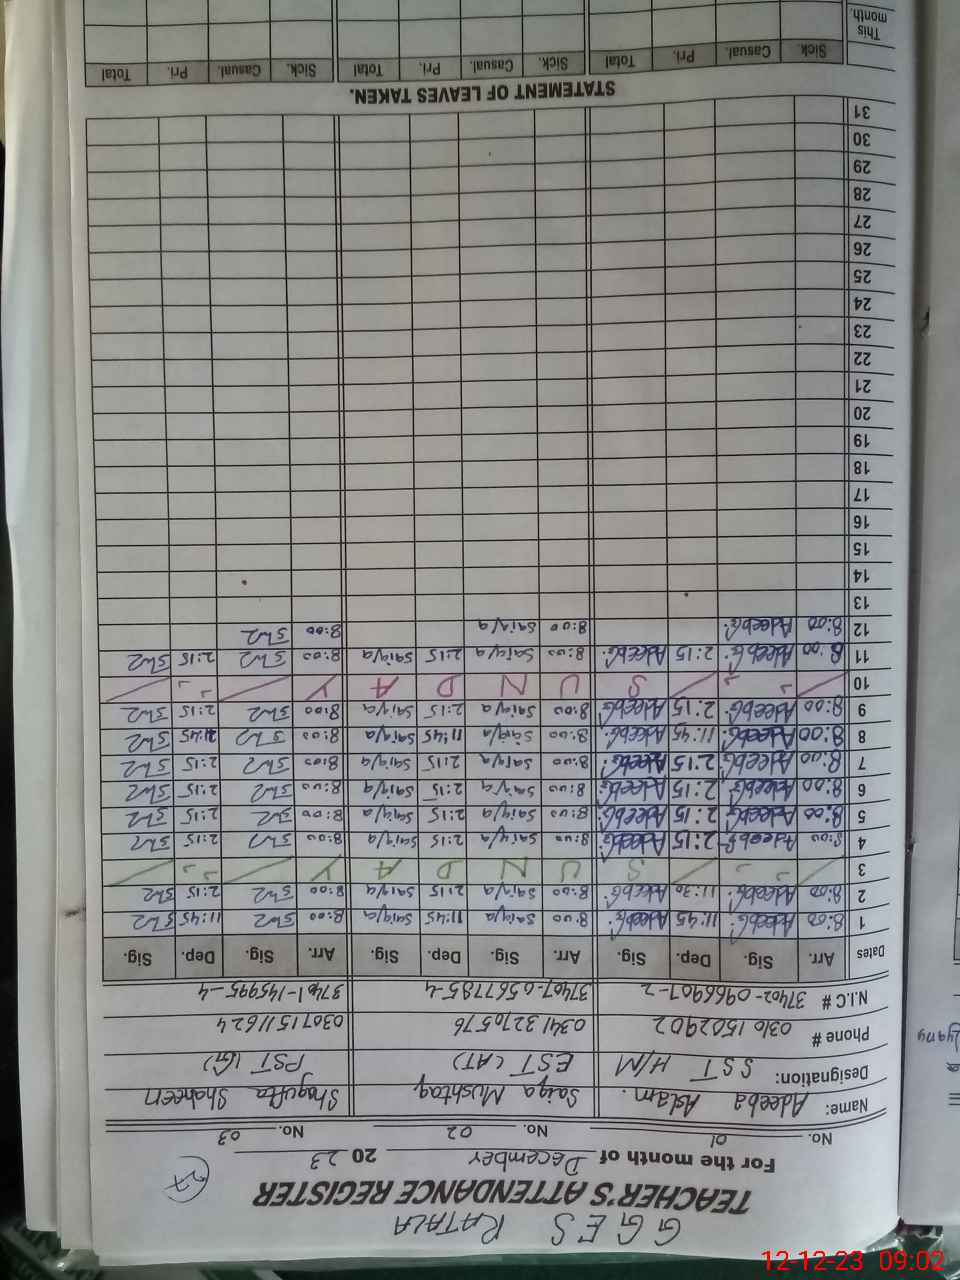 GGES RATALA
TEACHER'S ATTENDANCE REGISTER
27
For the month of December 2023
No. 01 No. 02 No. 03
Name: Adeeba Aslam. Saiqa Mushtaq Shagufta Shaheen
Designation: SST H/M EST (AT) PST (G)
Phone # 0316 1502902 0341 3270576 03071511624
N.I.C # 37402-0966907-2 37407-0567785-4 37401-145995-4
Dates Arr. Sig. Dep. Sig. Arr. Sig. Dep. Sig. Arr. Sig. Dep. Sig.
1 8:00 Adeeba 11:45 Adeeba 8:00 Saiqa 11:45 Saiqa 8:00 11:45
2 8:00 Adeeba 11:30 Adeeba 8:00 Saiqa 2:15 Saiqa 8:00 2:15
3 S U N D A Y
4 8:00 Adeeba 2:15 Adeeba 8:00 Saiqa 2:15 Saiqa 8:00 2:15
5 8:00 Adeeba 2:15 Adeeba 8:00 Saiqa 2:15 Saiqa 8:00 2:15
6 8:00 Adeeba 2:15 Adeeba 8:00 Saiqa 2:15 Saiqa 8:00 2:15
7 8:00 Adeeba 2:15 Adeeba 8:00 Saiqa 2:15 Saiqa 8:00 2:15
8 8:00 Adeeba 11:45 Adeeba 8:00 Saiqa 11:45 Saiqa 8:00 11:45
9 8:00 Adeeba 2:15 Adeeba 8:00 Saiqa 2:15 Saiqa 8:00 2:15
10 S U N D A Y
11 8:00 Adeeba 2:15 Adeeba 8:00 Saiqa 2:15 Saiqa 8:00 2:15
12 8:00 Adeeba 8:00 Saiqa 8:00
13
14
15
16
17
18
19
20
21
22
23
24
25
26
27
28
29
30
31
STATEMENT OF LEAVES TAKEN.
Sick. Casual. Pri. Total Sick. Casual. Pri. Total Sick. Casual. Pri. Total
This month.
12-12-23 09:02